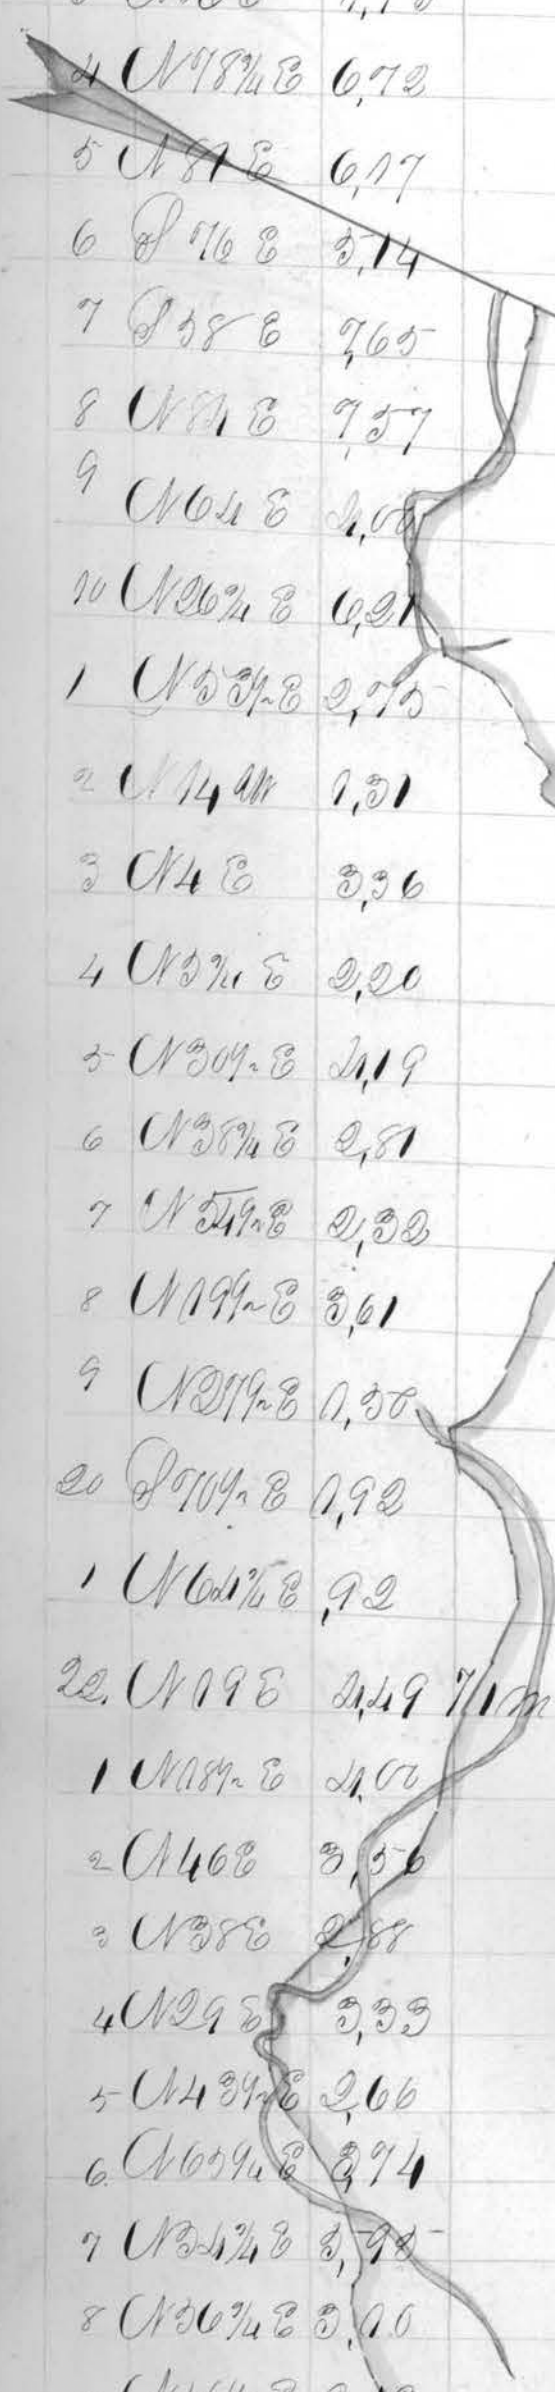 4 N 78¾ E 6,72
5 N 81 E 6,17
6 S 76 E 5,14
7 S 58 E 7,65
8 N 84 E 7,57
9 N 64 E 4,00
10 N 26¾ E 6,21
1 N 53½ E 2,75
2 N 14 W 1,31
3 N 4 E 3,36
4 N 5¾ E 2,20
5 N 30½ E 4,19
6 N 38¾ E 2,81
7 N 54½ E 2,32
8 N 19½ E 3,61
9 N 27½ E 1,50
20 S 70½ E 1,92
1 N 64¾ E ,92
22. N 19 E 4,49 71 m
1 N 18½ E 4,00
2 N 46 E 3,56
3 N 38 E 2,88
4 N 29 E 3,33
5 N 43½ E 2,66
6 N 65¼ E 3,74
7 N 34¾ E 5,95
8 N 36¾ E 3,10